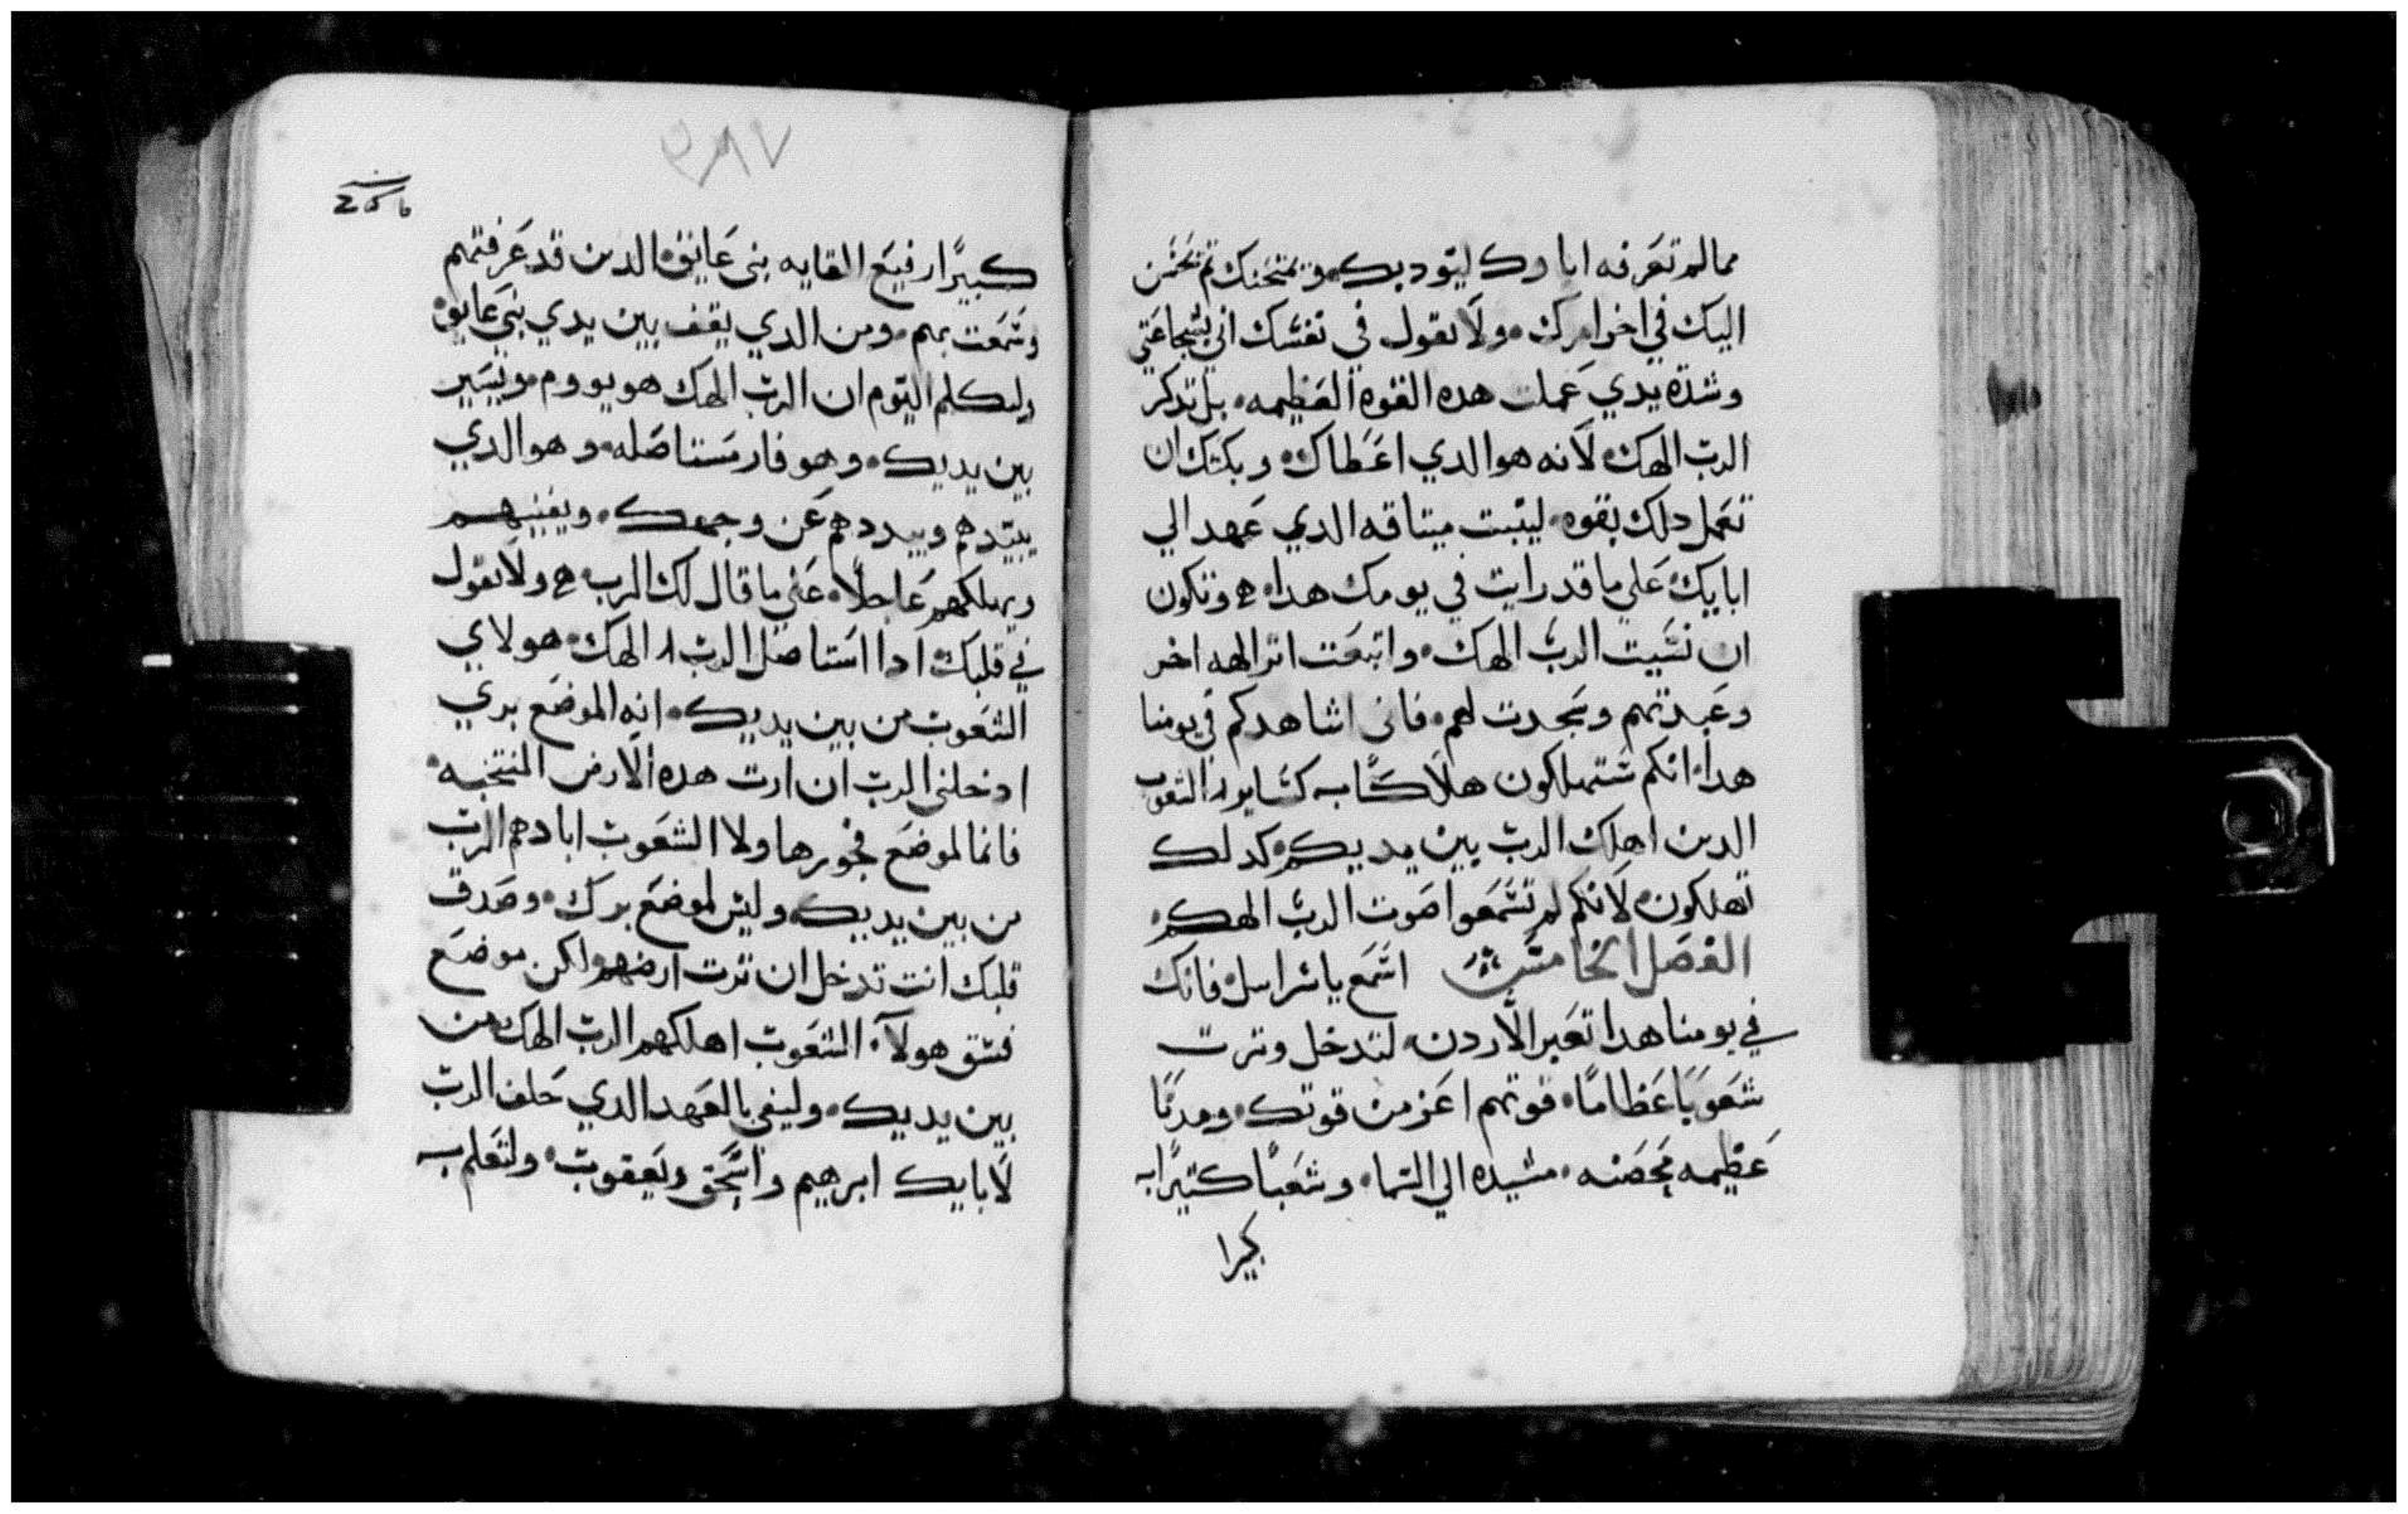 مما لم تعرفه اباوك ليودبك ويمتحنك تم يحسن
اليك في اخر امرك ولا تقول في نفسك اني بشجاعتي
وشدة يدي عملت هده القوه العظيمه بل تدكر
الرب الهك لانه هو الدي اعطاك ان
تعمل دلك بقوه ليتبت ميتاقه الدي عهد الي
ابايك علي ما قد رايت في يومك هدا وتكون
ان نسيت الرب الهك واتبعت اتر الهه اخر
وعبدتهم وسجدت لهم فاني اشاهدكم في يومنا
هدا انكم ستهلكون هلاكًا به كساير الشعوب
الدين اهلك الرب بين يديكم كدلك
تهلكون لانكم لم تسمعوا صوت الرب الهكم
الفصل الخامس اسمع ياسراييل فانك
في يومنا هدا تعبر الاردن لتدخل وترت
شعوبًا عظامًا قوتهم اعز من قوتك ومدنًا
عظيمه محصنه مشيده الي السما وشعبًا كتيرًا به
كبيرا
٣٨٧
كبيرًا رفيع القايه بني عانق الدين قد عرفتهم
وسمعت بهم ومن الدي يقف بين يدي بني عانق
ولتعلم اليوم ان الرب الهك هو يووم ويسير
بين يديك وهو نار مستاصله وهو الدي
يبيدهم ويبددهم عن وجهك ويفنيهم
ويهلكهم عاجلًا عني ما قال لك الرب ولا تقول
في قلبك ادا استاصل الرب الهك هولاي
الشعوب من بين يديك انه الموضع بري
ادخلني الرب ان ارت هده الارض المنتخبه
فانما لموضع فجورها ولا الشعوب ابادهم الرب
من بين يديك وليس لموضع برك وصدق
قلبك انت تدخل ان ترت ارضهم لكن موضع
فسق هولآ الشعوب اهلكهم الرب الهك من
بين يديك وليفي بالعهد الدي حلف الرب
لابايك ابرهيم واسحق ويعقوب ولتعلم به